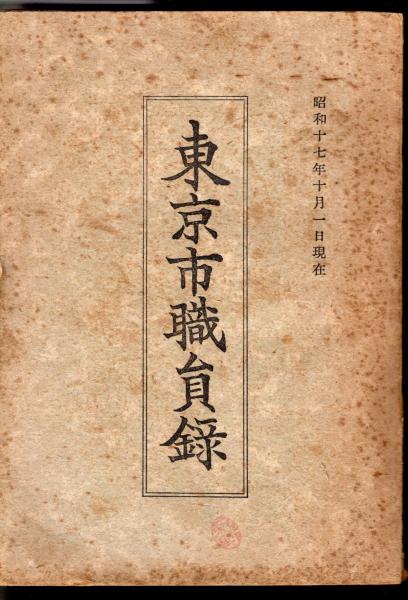 昭和十七年十月一日現在
東京市職員錄